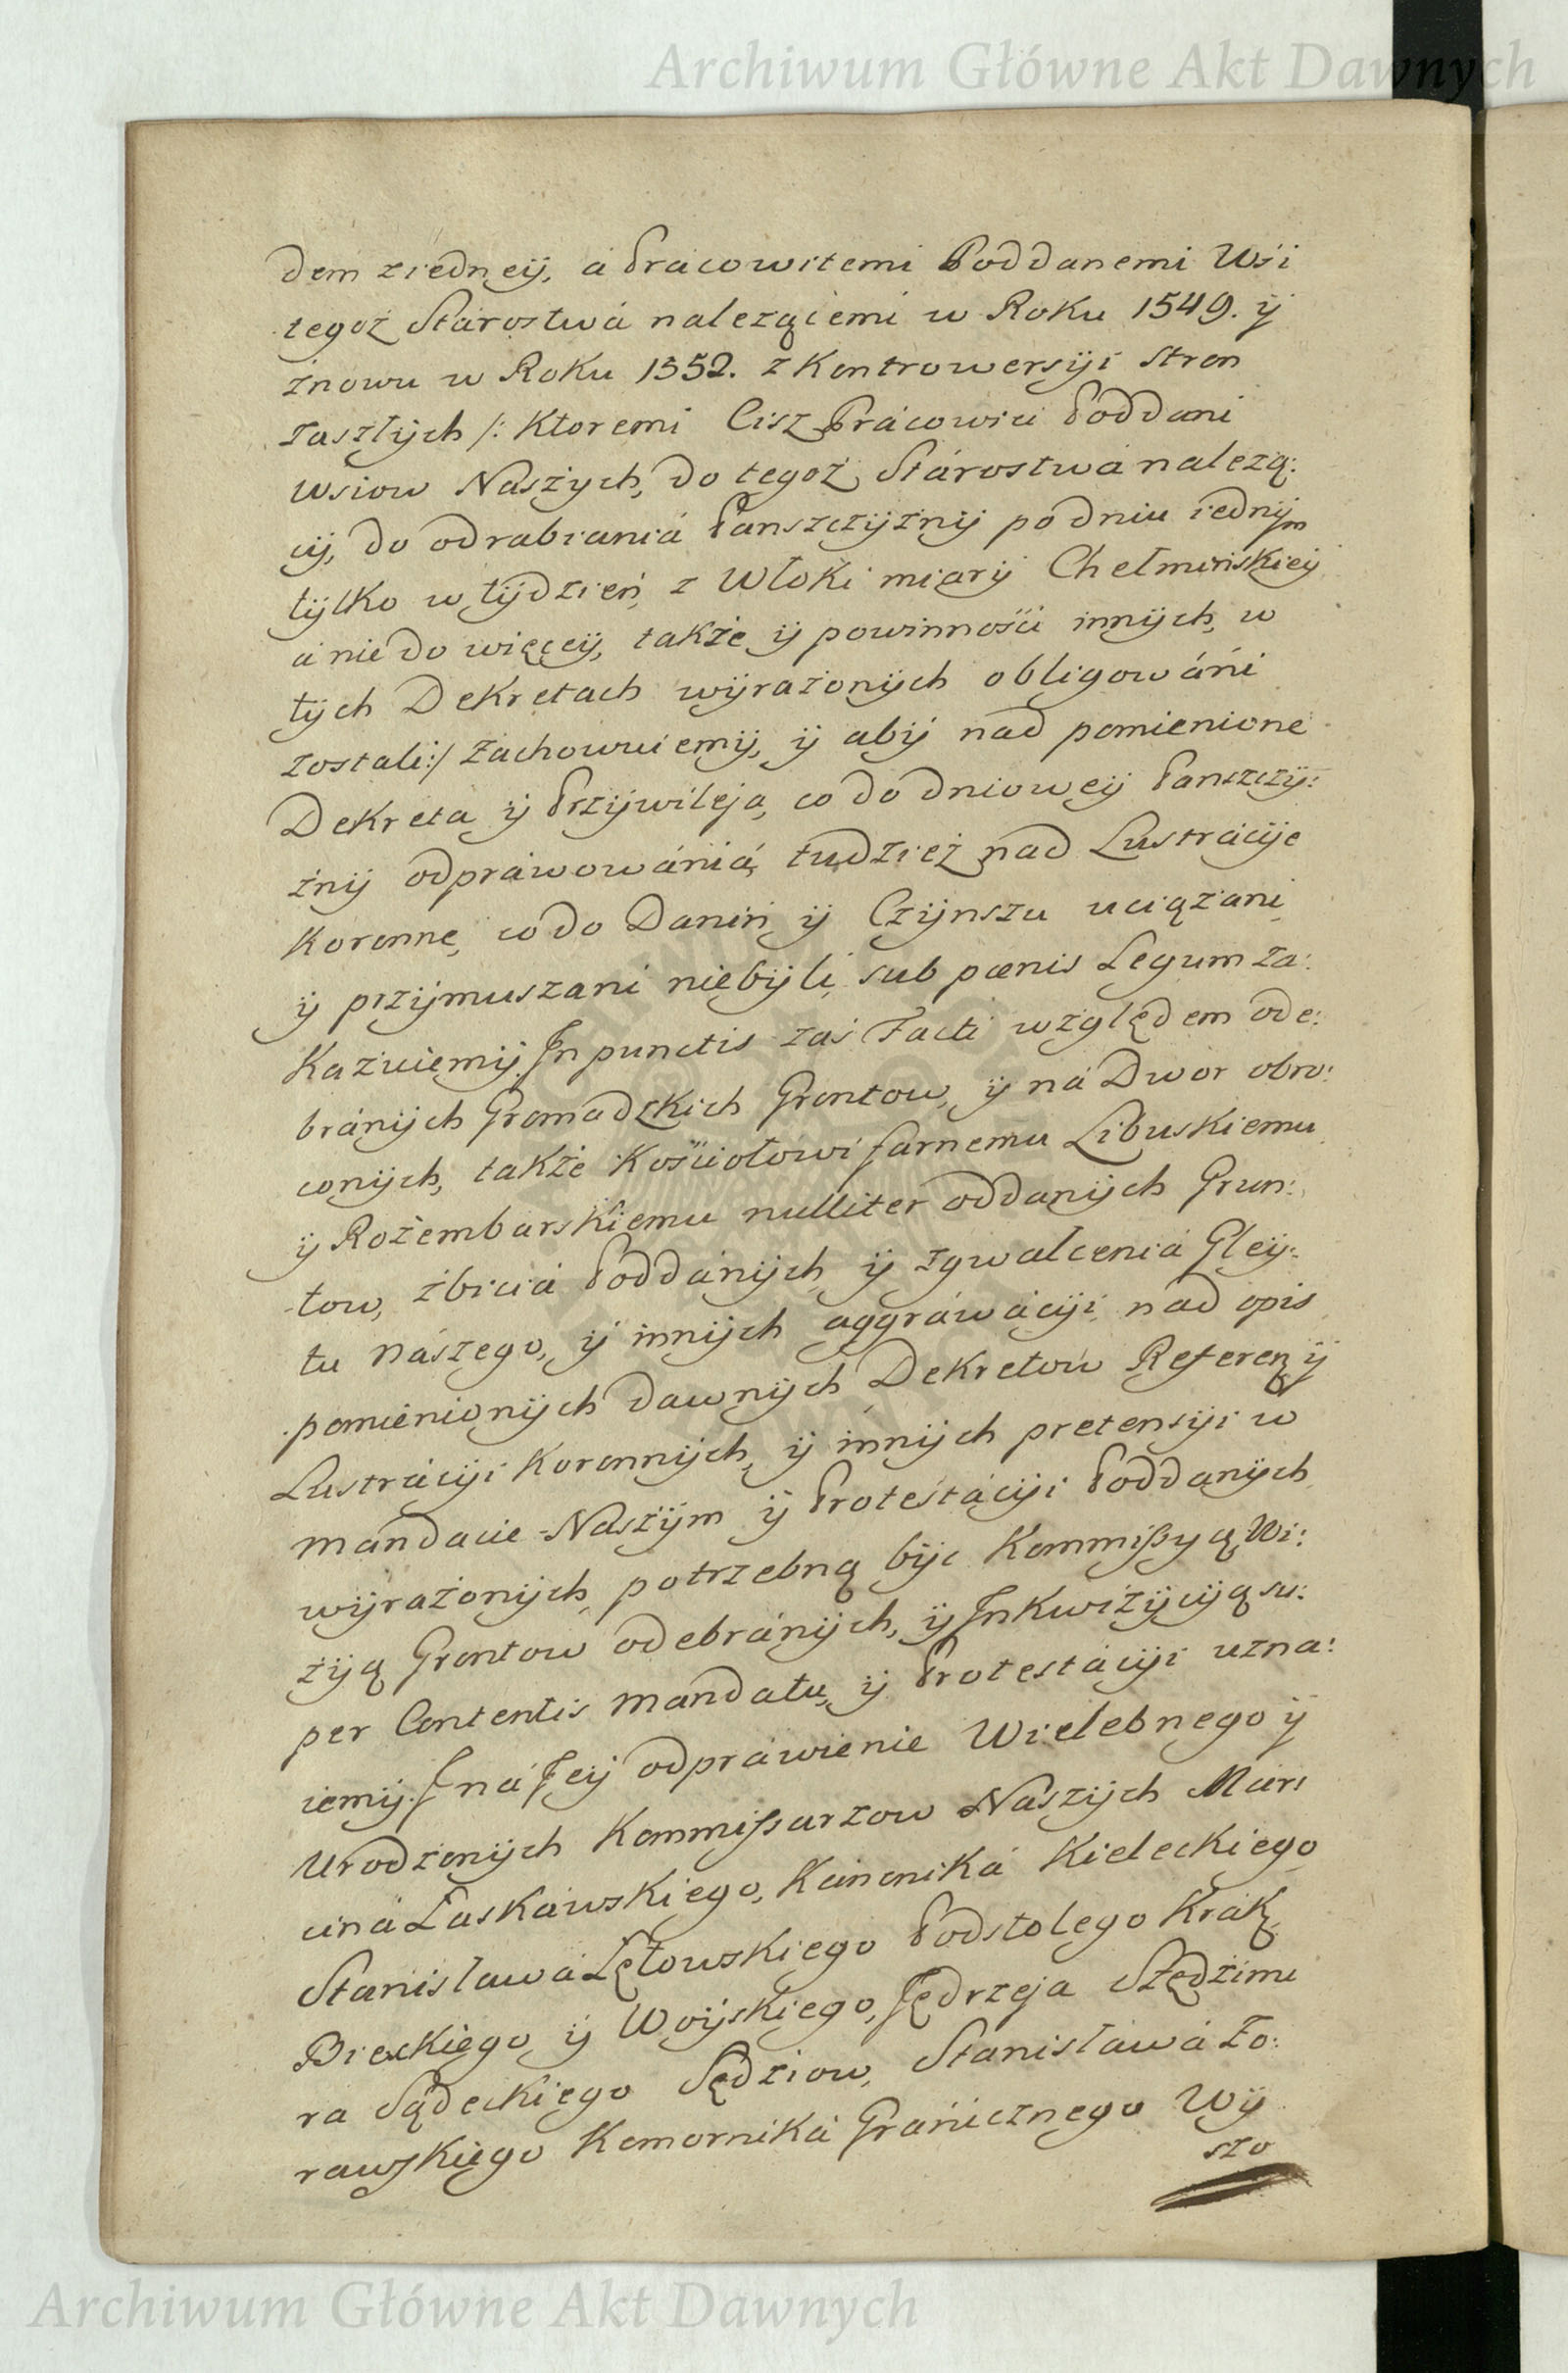 Archiwum Główne Akt Dawnych
dem ziedney, á Pracowitemi Poddanemi Wśi
tegoż Stárostwá należąćemi w Roku 1549. ÿ
znowu w Roku 1552. z Kontrowersÿi Stron
zaszłÿch /: Ktoremi Cisz Prácowici Poddani
Wsiow Naszÿch, do tegoż Stárostwá należą:
cÿ, do odrabianiá Panszczÿznÿ po dniu iednÿm
tÿlko w tÿdzień, z Włoki miarÿ Chełmińskieÿ
á nie do więceÿ, także ÿ powinnośći innÿch, w
tÿch Dekretach wÿrażonÿch obligowáni
zostali :/ zachowuiemÿ, ÿ abÿ nad pomienione
Dekreta ÿ Przÿwileja, co do dnioweÿ Panszczÿ:
znÿ odpráwowániá, tudzież nad Lustrácÿe
Koronne, co do Danin ÿ Czÿnszu uciążani
ÿ przÿmuszani niebÿli, sub pœnis Legum za:
kazuiemÿ. In punctis zaś Facti względem ode:
bránÿch Gromadzkich Grontow, ÿ ná Dwor obro:
conÿch, także Kośćiołowi farnemu Libuskiemu
ÿ Rożembarskiemu nulliter oddanÿch Grun:
tow, zbiciá Poddánÿch ÿ zgwałceniá Gleÿ:
tu nászego, ÿ innÿch aggráwácÿi nad opis
pomienionÿch dawnÿch Dekretow Referen. ÿ
Lustrácÿi Koronnÿch, ÿ innÿch pretensÿi w
mandacie Naszÿm ÿ Protestácÿi Poddanÿch
wÿrażonÿch, potrzebną bÿc Kommißyą, Wi:
zÿą Grontow odebránÿch, ÿ Inkwizÿcÿą su:
per Contentis mandatu, ÿ Protestácÿi uzna:
iemÿ. I ná Jeÿ odpráwienie Wielebnego ÿ
Urodzonÿch Kommißarzow Naszÿch Mar:
ciná Łaskáwskiego, Kanoniká Kieleckiego
Stanisławá Łętowskiego Podstolego Krak.
Bieckiego ÿ Woÿskiego, Jędrzeja Stędzimi
ra Sądeckiego Sędziow, Stanisławá Zo:
rawskiego Komorniká Gránicznego Wÿ
szo
Archiwum Główne Akt Dawnych